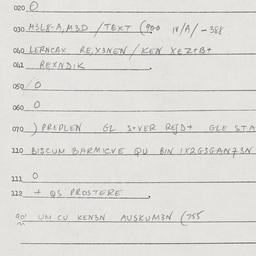 020 O
030 M3L8-A,M3D /TEXT (900 IV/A/-388
040 LERNCAX RE,X3NEN / KEN XEZ+B+
041 REXNDIK
050 /O
060 O
070 ) PREPLEN GL S+VER RE[D+ GLE STA
110 BISCUM BARMICVE QU BIN 1X2G3GAN73N
111 O
112 + QS PROSTERE
UM CU KEN3N AUSKUM3N (755